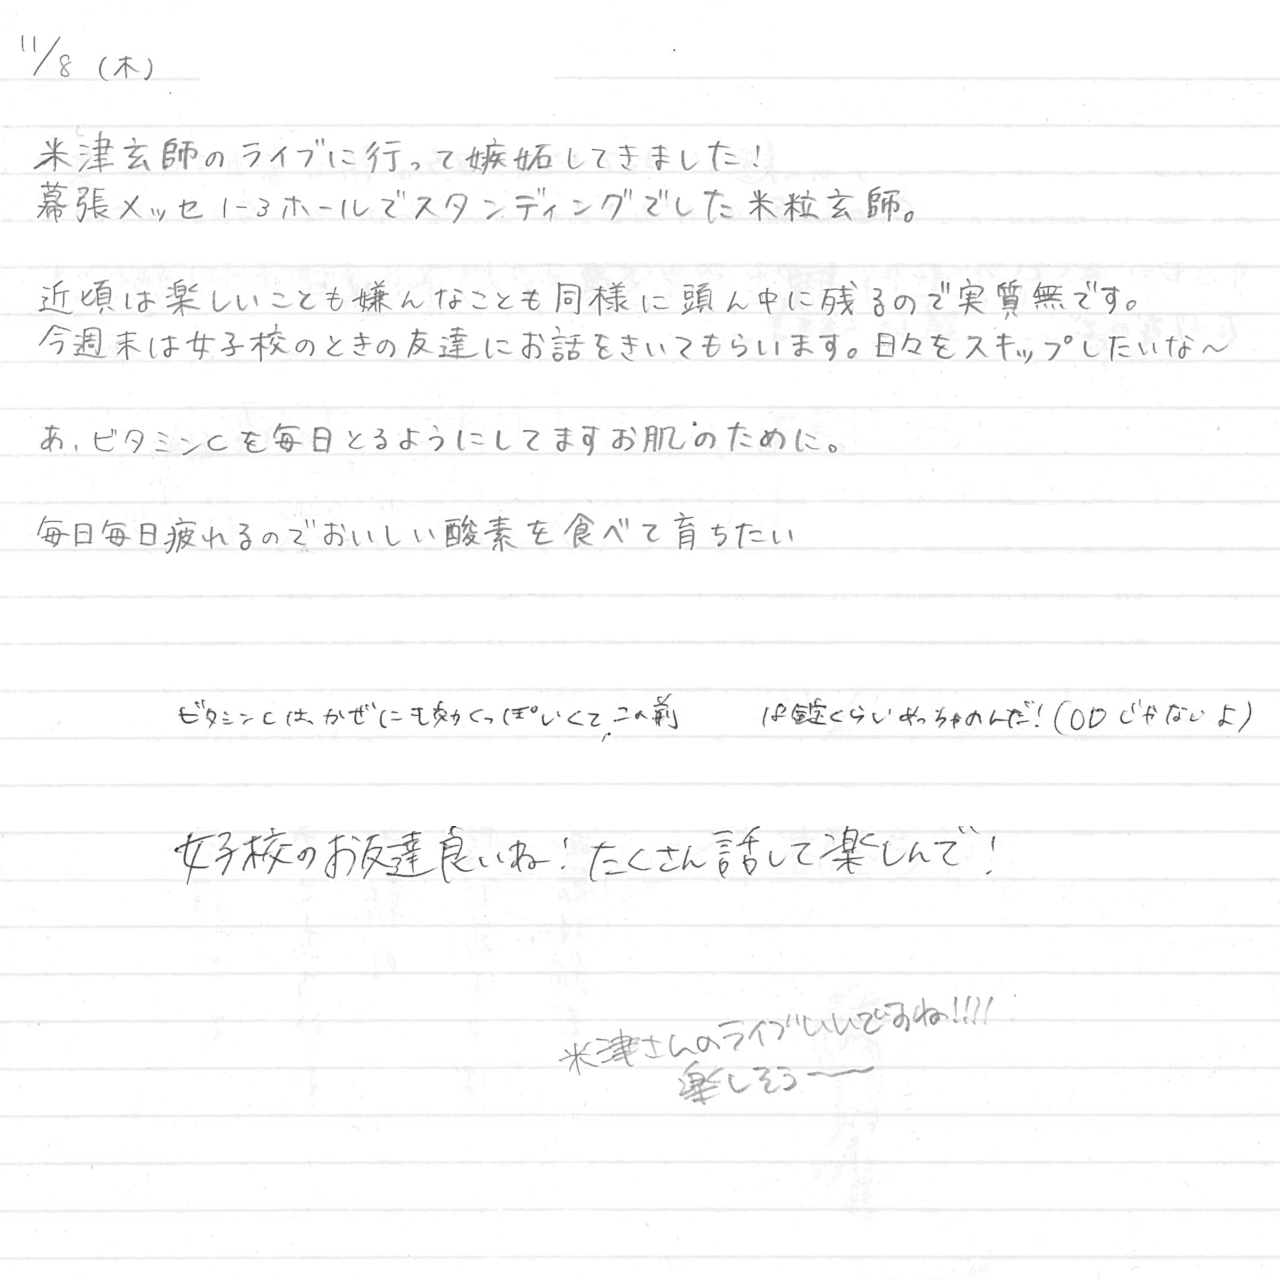 11/8 (木)
米津玄師のライブに行って嫉妬してきました!
幕張メッセ1-3ホールでスタンディングでした米粒玄師。
近頃は楽しいことも嫌んなことも同様に頭ん中に残るので実質無です。
今週末は女子校のときの友達にお話をきいてもらいます。日々をスキップしたいな〜
あ、ビタミンCを毎日とるようにしてますお肌のために。
毎日毎日疲れるのでおいしい酸素を食べて育ちたい
ビタミンCは、かぜにも効くっぽいくて、この前 18錠くらいめっちゃのんだ!(ODじゃないよ)
女子校のお友達良いね!たくさん話して楽しんで!
米津さんのライブいいですね!!!!
楽しそう〜